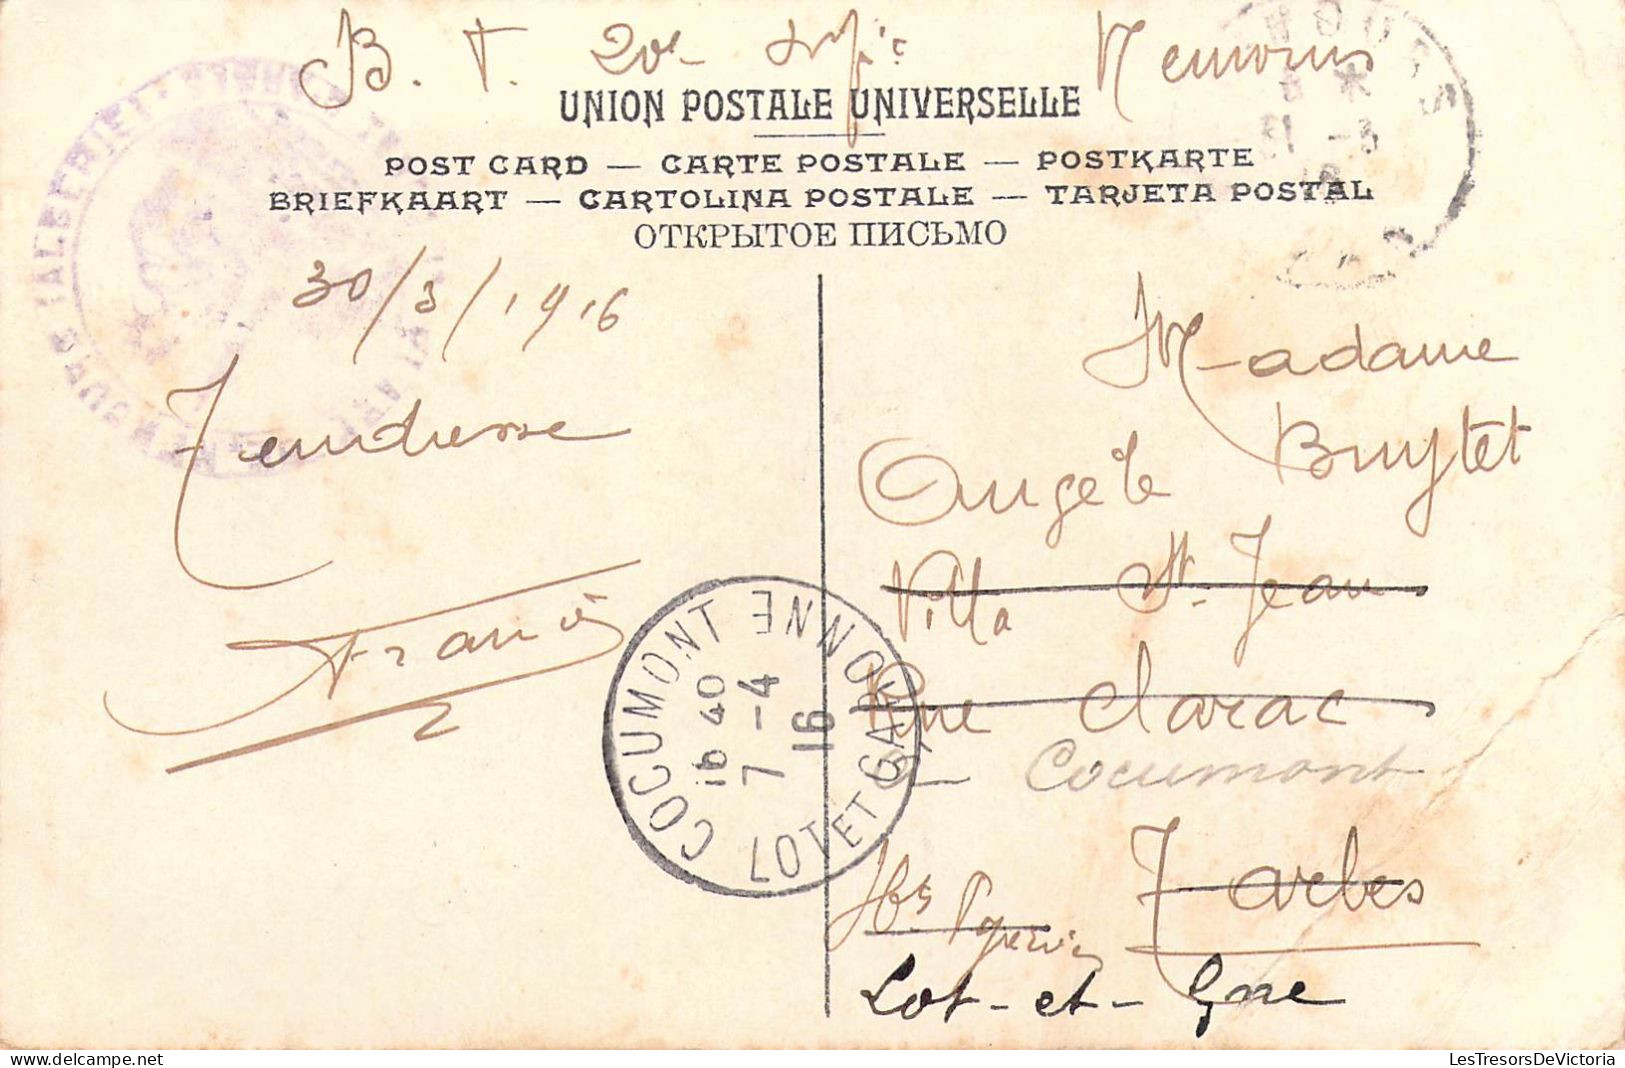 B. T. 20e Nemours
UNION POSTALE UNIVERSELLE
POST CARD — CARTE POSTALE — POSTKARTE
BRIEFKAART — CARTOLINA POSTALE — TARJETA POSTAL
ОТКРЫТОЕ ПИСЬМО
30/3/1916
Tendresse
Madame
Angèle Buytet
Villa St. Jean
Rue Clarac
à Cocumont
Tarbes
Lot-et-Gne
COCUMONT
LOT ET GARONNE
7 -4
16
LesTresorsDeVictoria